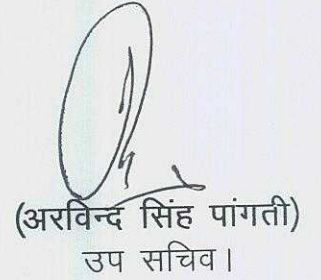 (अरविन्द सिंह पांगती)
उप सचिव।